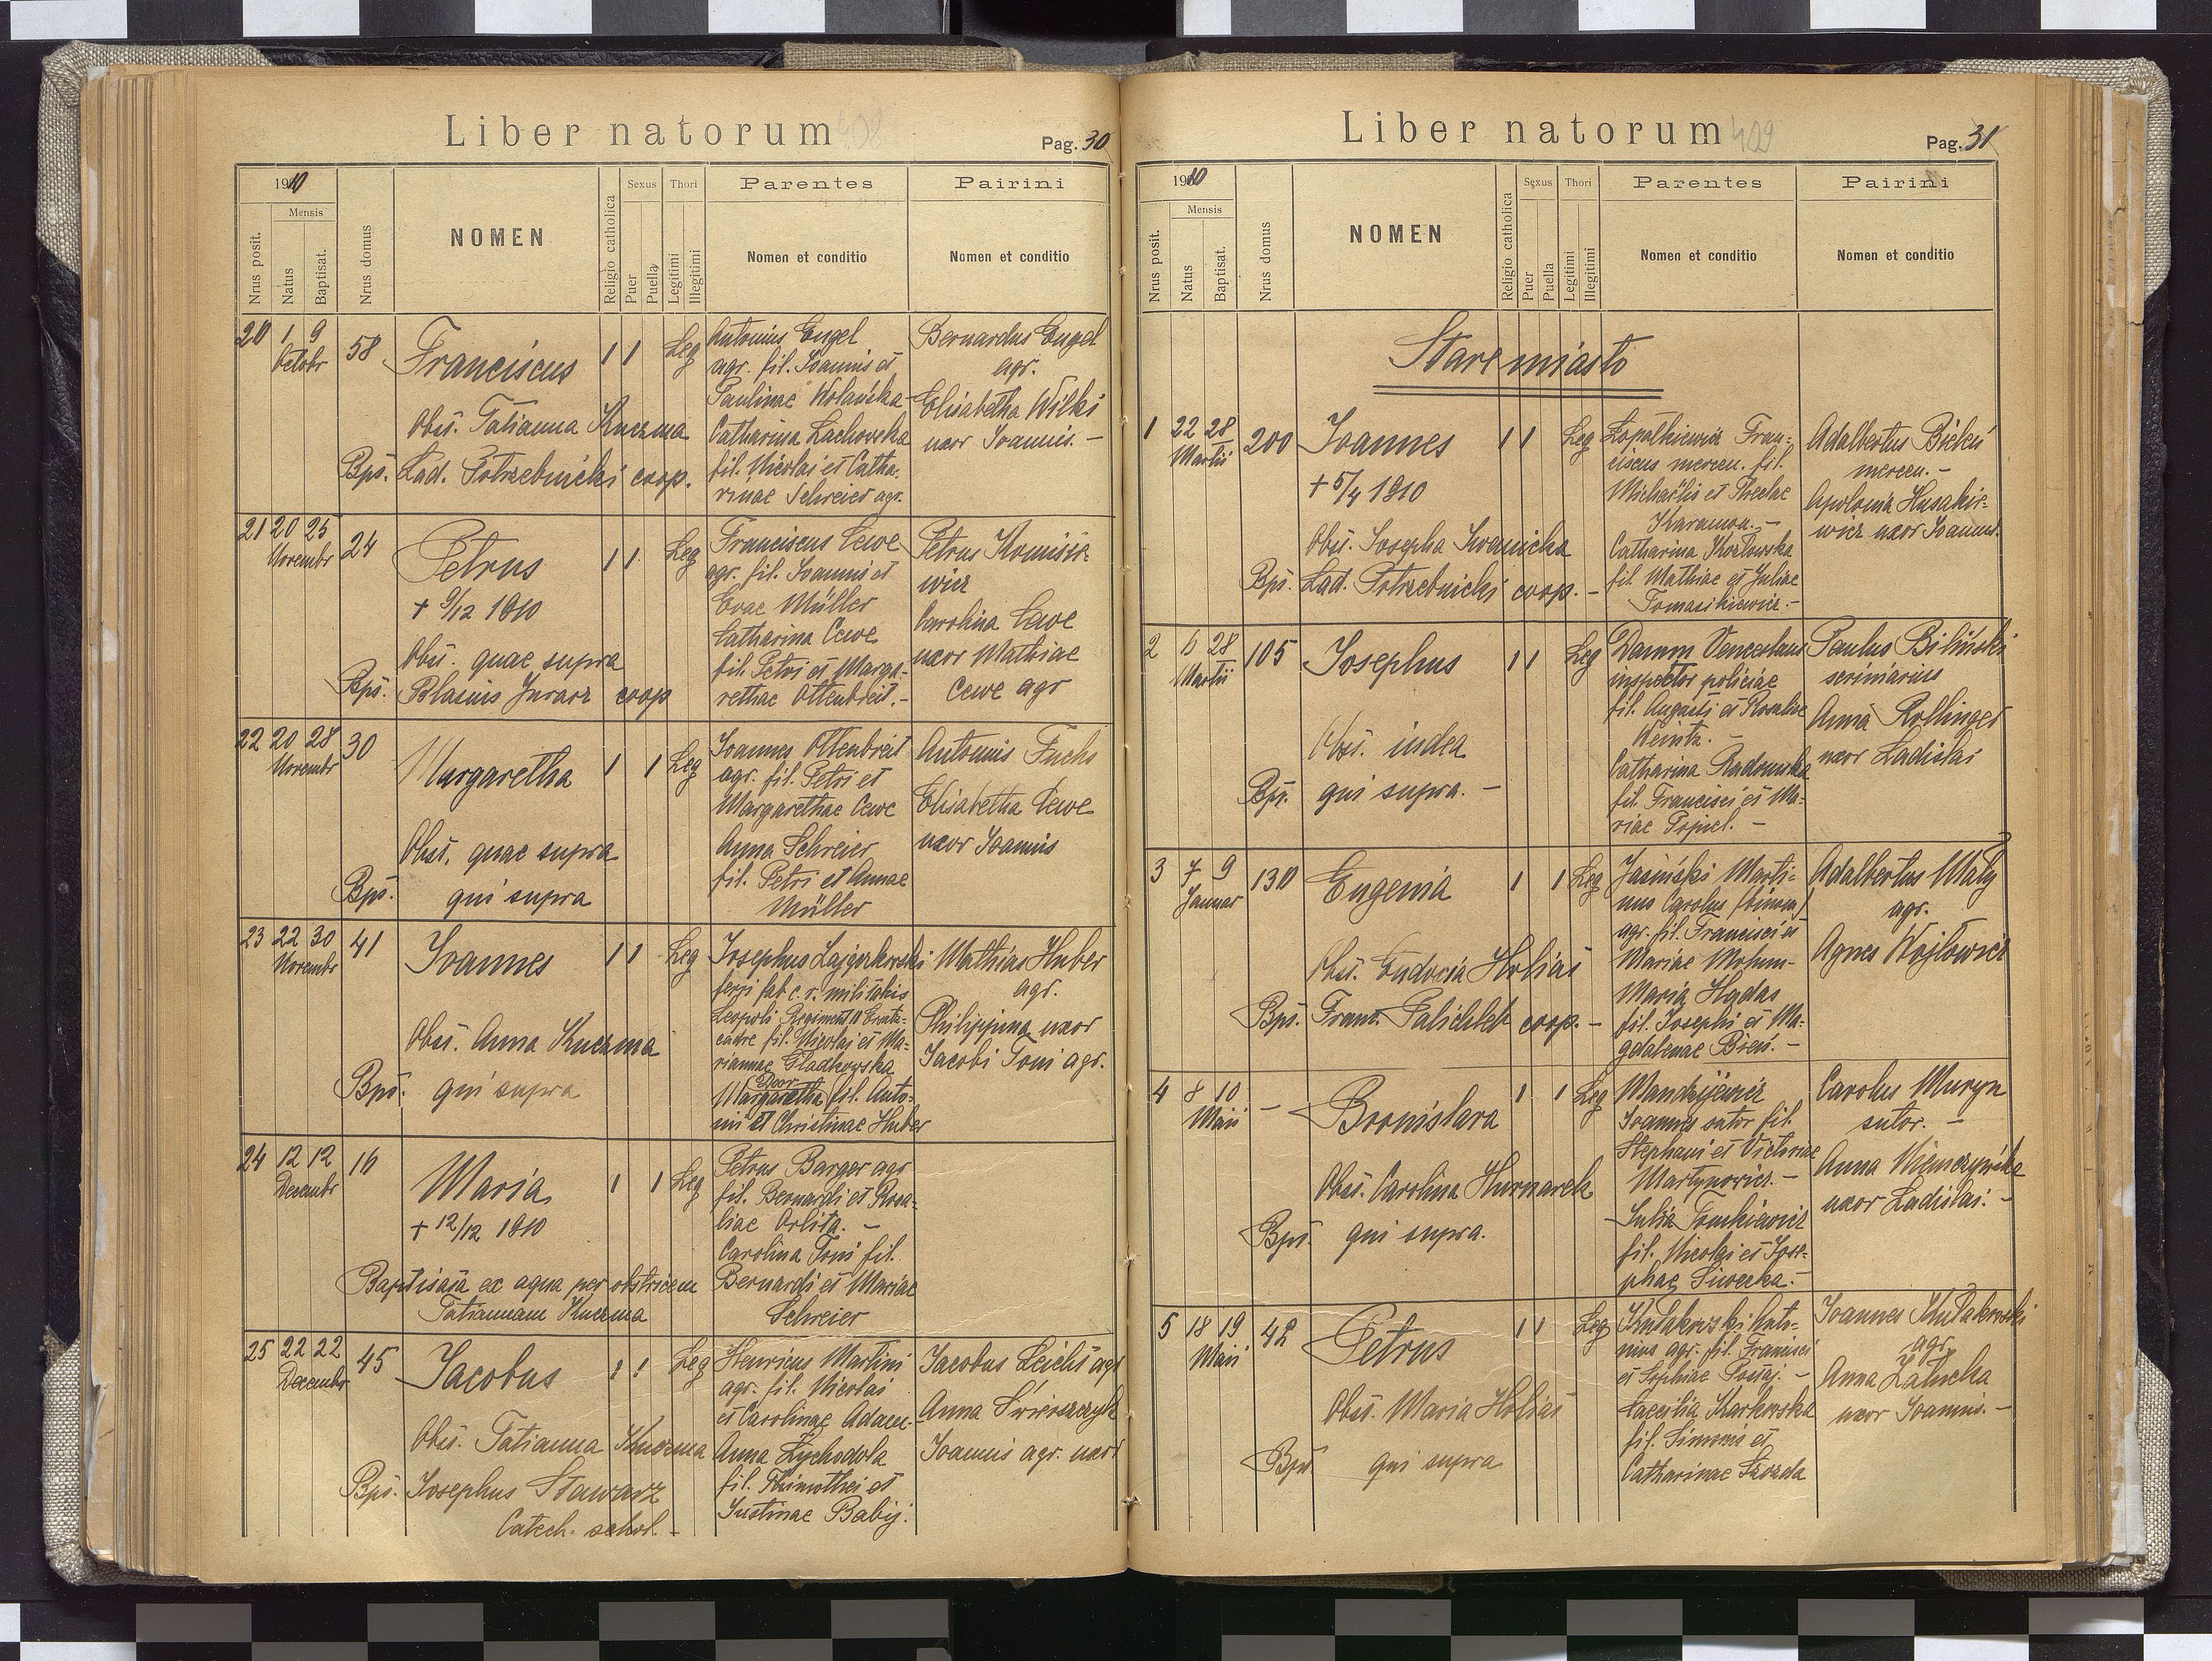 Liber natorum 408
Pag. 30
1910
Mensis
Nrus posit.
Natus
Baptisat.
Nrus domus
NOMEN
Religio catholica
Sexus
Puer
Puella
Thori
Legitimi
Illegitimi
Parentes
Nomen et conditio
Pairini
Nomen et conditio
20 1 9 Octobr 58 Franciscus 1 1 Leg
Obst. Tatianna Kuczma
Bpt. Lad. Potrzebnicki coop.
Antonius Engel
agr. fil. Joannis et
Paulinae Wolańska
Catharina Lachowska
fil. Nicolai et Catha-
rinae Schreier agr.
Bernardus Engel
agr.
Elisabetha Wilki
uxor Joannis. -
21 20 25 Novembr 24 Petrus 1 1 Leg
+ 9/12 1910
Obst. quae supra
Bpt. Blasius Jurasz coop
Franciscus Cewe
agr. fil. Joannis et
Evae Müller
Catharina Cewe
fil. Petri et Marga-
rethae Ottenbreit. -
Petrus
wicz
Carolina Cewe
uxor Mathiae
Cewe agr
22 20 28 Novembr 30 Margaretha 1 1 Leg
Obst. quae supra
Bpt. qui supra
Joannes Ottenbreit
agr. fil. Petri et
Margarethae Cewe
Anna Schreier
fil. Petri et Annae
Müller
Antonius Fuchs
Elisabetha Cewe
uxor Joannis
23 22 30 Novembr 41 Joannes 1 1 Leg
Obst. Anna Kuczma
Bpt. qui supra
Josephus
c. r. militaris
Leopoli Regiment
cadre fil. Nicolai et Ma-
riannae Gladkowska
Door
Margaretha fil. Anto-
nii et Christinae Huber
Mathias Huber
agr.
Philippina uxor
Jacobi Toni agr.
24 12 12 Decembr 16 Maria 1 1 Leg
+ 12/12 1910
Baptisata ex aqua per obstricem
Tatiannam Kuczma
Petrus Barger agr
fil. Bernardi et Rosa-
liae Orlita. -
Carolina Toni fil.
Bernardi et Mariae
Schreier
25 22 22 Decembr 45 Jacobus 1 1 Leg
Obst. Tatianna Kuczma
Bpt. Josephus Stawarz
Catech. schol. -
Henricus Martini
agr. fil. Nicolai
et Carolinae Adam-
Anna Lychodola
fil. Thimothei et
Justinae Babij.
Jacobus Leicht agr
Anna Świerszczyk
Joannis agr. uxor
Liber natorum 409
Pag. 31
1910
Mensis
Nrus posit.
Natus
Baptisat.
Nrus domus
NOMEN
Religio catholica
Sexus
Puer
Puella
Thori
Legitimi
Illegitimi
Parentes
Nomen et conditio
Pairini
Nomen et conditio
Stare miasto
1 22 28 Martii 200 Joannes 1 1 Leg
+ 5/4 1910
Obst. Josepha Iwanicka
Bpt. Lad. Potrzebnicki coop. -
Łopatkiewicz Fran-
ciscus mercen. fil.
Michaëlis et Theclae
Karamon. -
Catharina Kozłowska
fil. Mathiae et Juliae
Tomasikiewicz. -
Adalbertus Bieleń
mercen. -
Apolonia Husakie-
wicz uxor Joannis.
2 6 28 Martii 105 Josephus 1 1 Leg
Obst. index
Bpt. qui supra. -
Damm Venceslaus
inspector policiae
fil. Augusti et Rosaliae
Weintz. -
Catharina Radomska
fil. Francisci et Ma-
riae Popiel. -
Paulus Biliński
scriniarius
Anna Rollinger
uxor Ladislai
3 7 9 Januar 130 Eugenia 1 1 Leg
Obst. Eudoxia Holias
Bpt. Franc. Palichleb coop. -
Jasiński Marti-
nus Carolus (binom)
agr. fil. Francisci et
Mariae Mohum-
Maria Hadas
fil. Josephi et Ma-
gdalenae Bień. -
Adalbertus Mały
agr.
Agnes Wojtowicz
4 8 10 Maii - Bronislava 1 1 Leg
Obst. Carolina Hurnarek
Bpt. qui supra.
Mandzijewicz
Joannes sutor fil.
Stephani et Victoriae
Martynowicz. -
Julia Tomkiewicz
fil. Nicolai et Jose-
phae Siwecka. -
Carolus Muryn
sutor. -
Anna Niemczywska
uxor Ladislai. -
5 18 19 Maii 42 Petrus 1 1 Leg
Obst. Maria Holias
Bpt qui supra
Kułakowski Anto-
nius agr. fil. Francisci
et Sophiae Possaj. -
Caecilia Karkowska
fil. Simonis et
Catharinae Szozda
Joannes Kułakowski
agr.
Anna Załucka
uxor Joannis. -